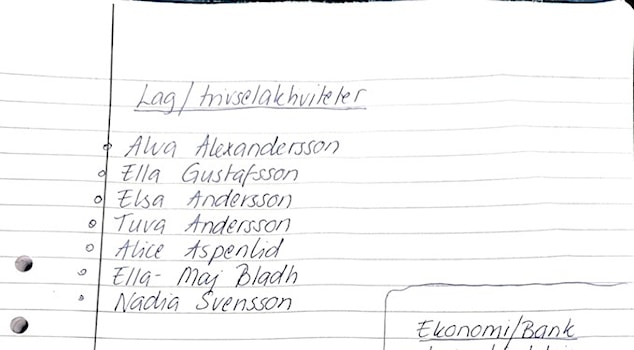 Lag/trivselakhviteter
Alva Alexandersson
Ella Gustafsson
Elsa Andersson
Tuva Andersson
Alice Aspenlid
Ella-Maj Bladh
Nadia Svensson
Ekonomi/Bank